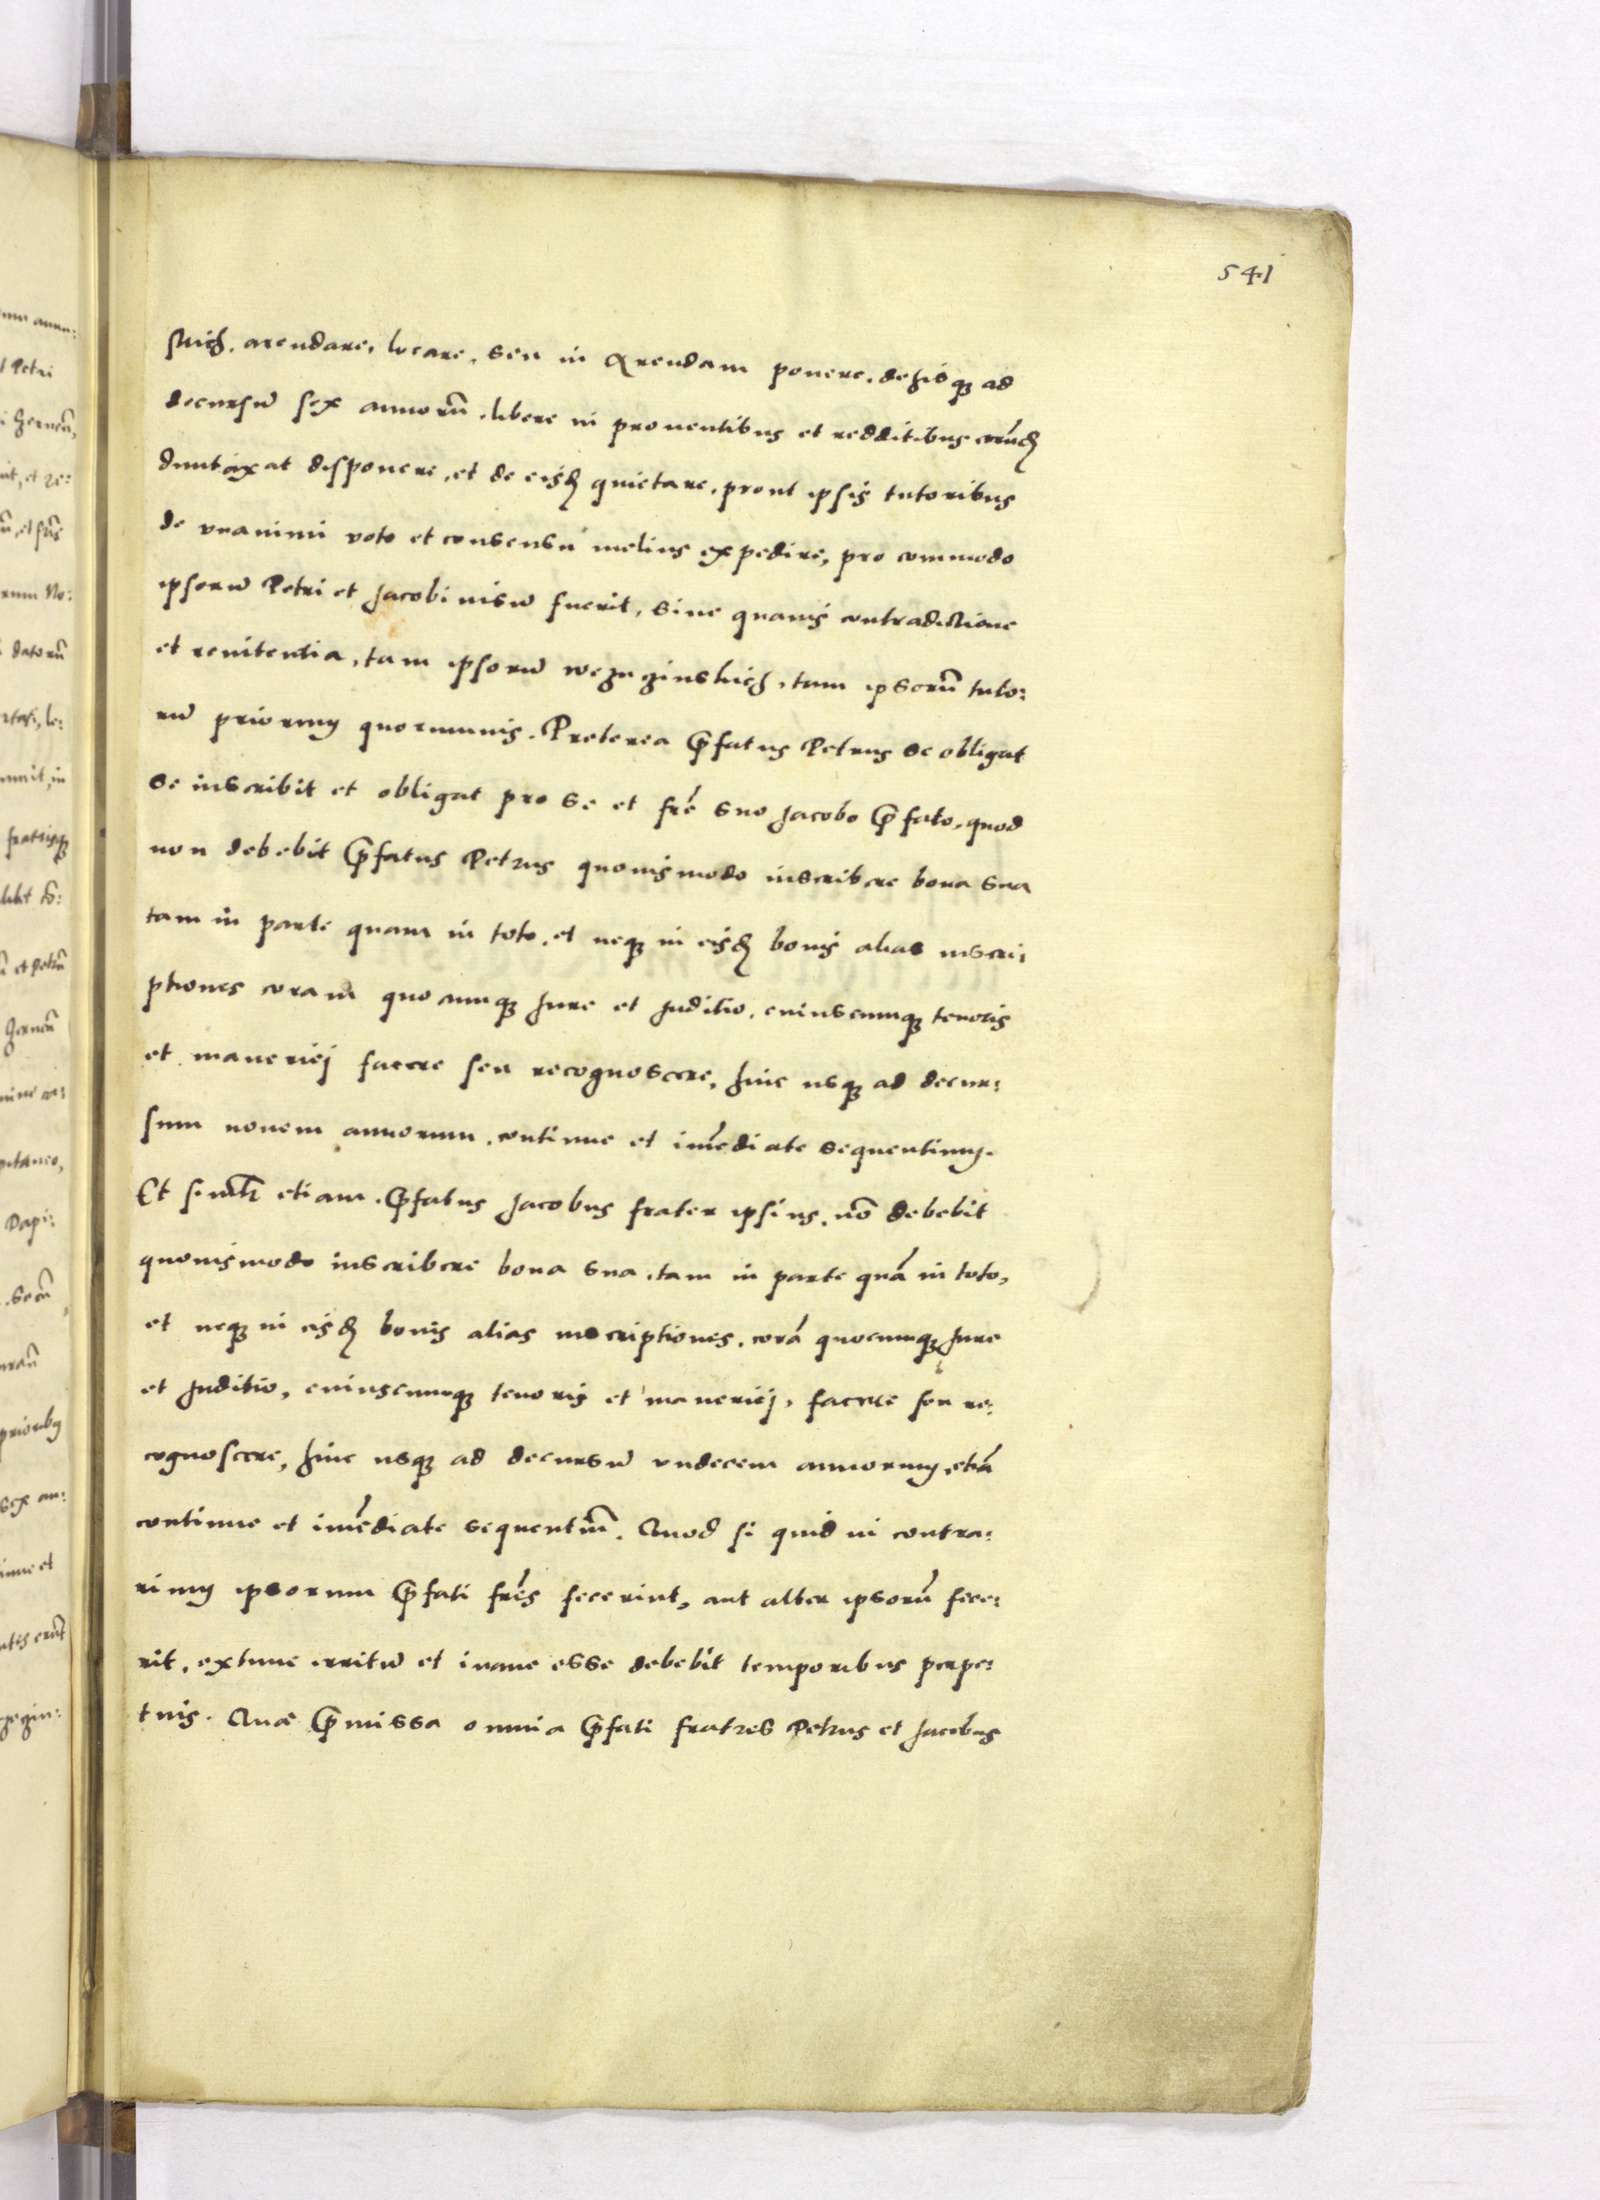 541
skich, arendare, locare, seu in Arendam ponere, dehisq3 ad
decursũ sex annorũ, libere in proventibus et redditibus eorũd
duntaxat disponere, et de eisd quietare, prout ipsis tutoribus
de unanimi voto et consensu melius expedire, pro commodo
ipsorũ Petri et Jacobi visũ fuerit, sine quavis contradictione
et renitentia, tam ipsorũ tam ipsorũ tuto:
rũ priorum quorumvis. Preterea Prefatus Petrus se obligat
se inscribit et obligat pro se et frẽ suo Jacobo Prefato, quod
non debebit Prefatus Petrus quovismodo inscribere bona sua
tam in parte quam in toto, et neq3 in eisd bonis alias inscri:
ptiones coram quocunq3 Jure et Juditio, cuiuscunq3 tenoris
et maneriej facere seu recognoscere, hinc usq3 ad decur:
sum novem annorum, continue et imẽdiate sequentium.
Et simlr etiam Prefatus Jacobus frater ipsius, nõ debebit
quovismodo inscribere bona sua, tam in parte quã in toto,
et neq3 in eisd bonis alias inscriptiones, corã quocunq3 Jure
et Juditio, cuiuscunq3 tenoris et maneriej, facere seu re:
cognoscere, hinc usq3 ad decursũ undecem annorum, etiã
continue et imẽdiate sequentiũ. Quod si quid in contra:
rium ipsorum Prefati frẽs fecerint, aut alter ipsorũ fece:
rit, extunc irritũ et inane esse debebit temporibus perpe:
tuis. Quæ Premissa omnia Prefati fratres Petrus et Jacobus